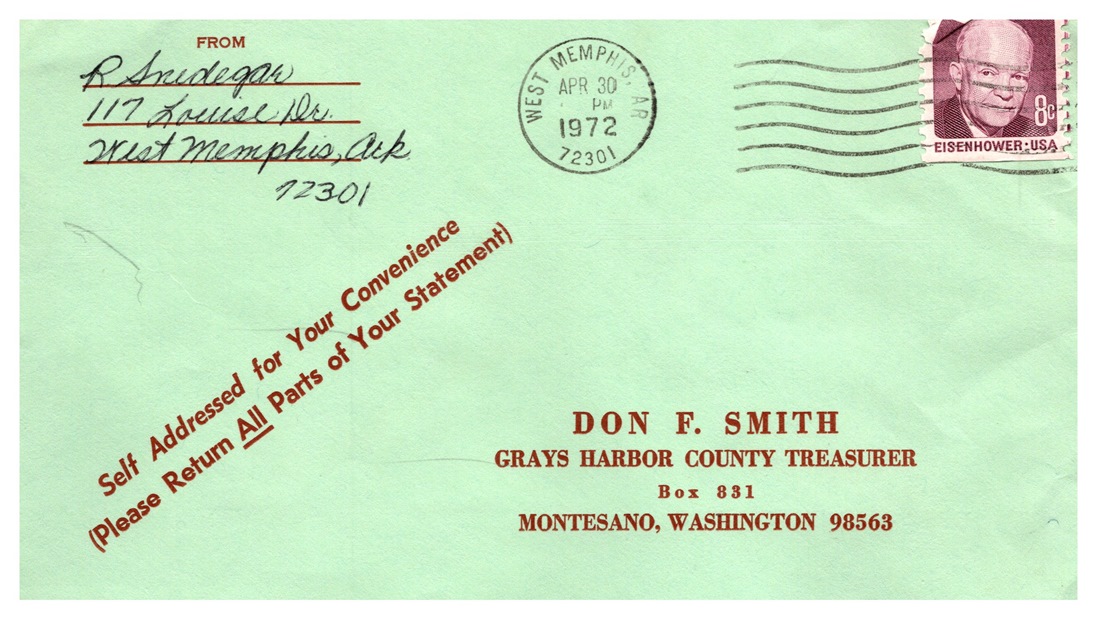 FROM
R Snedegar
117 Louise Dr.
West Memphis, Ark
72301
WEST MEMPHIS, AR
APR 30
PM
1972
72301
8c
EISENHOWER·USA
Self Addressed for Your Convenience
(Please Return All Parts of Your Statement)
DON F. SMITH
GRAYS HARBOR COUNTY TREASURER
Box 831
MONTESANO, WASHINGTON 98563